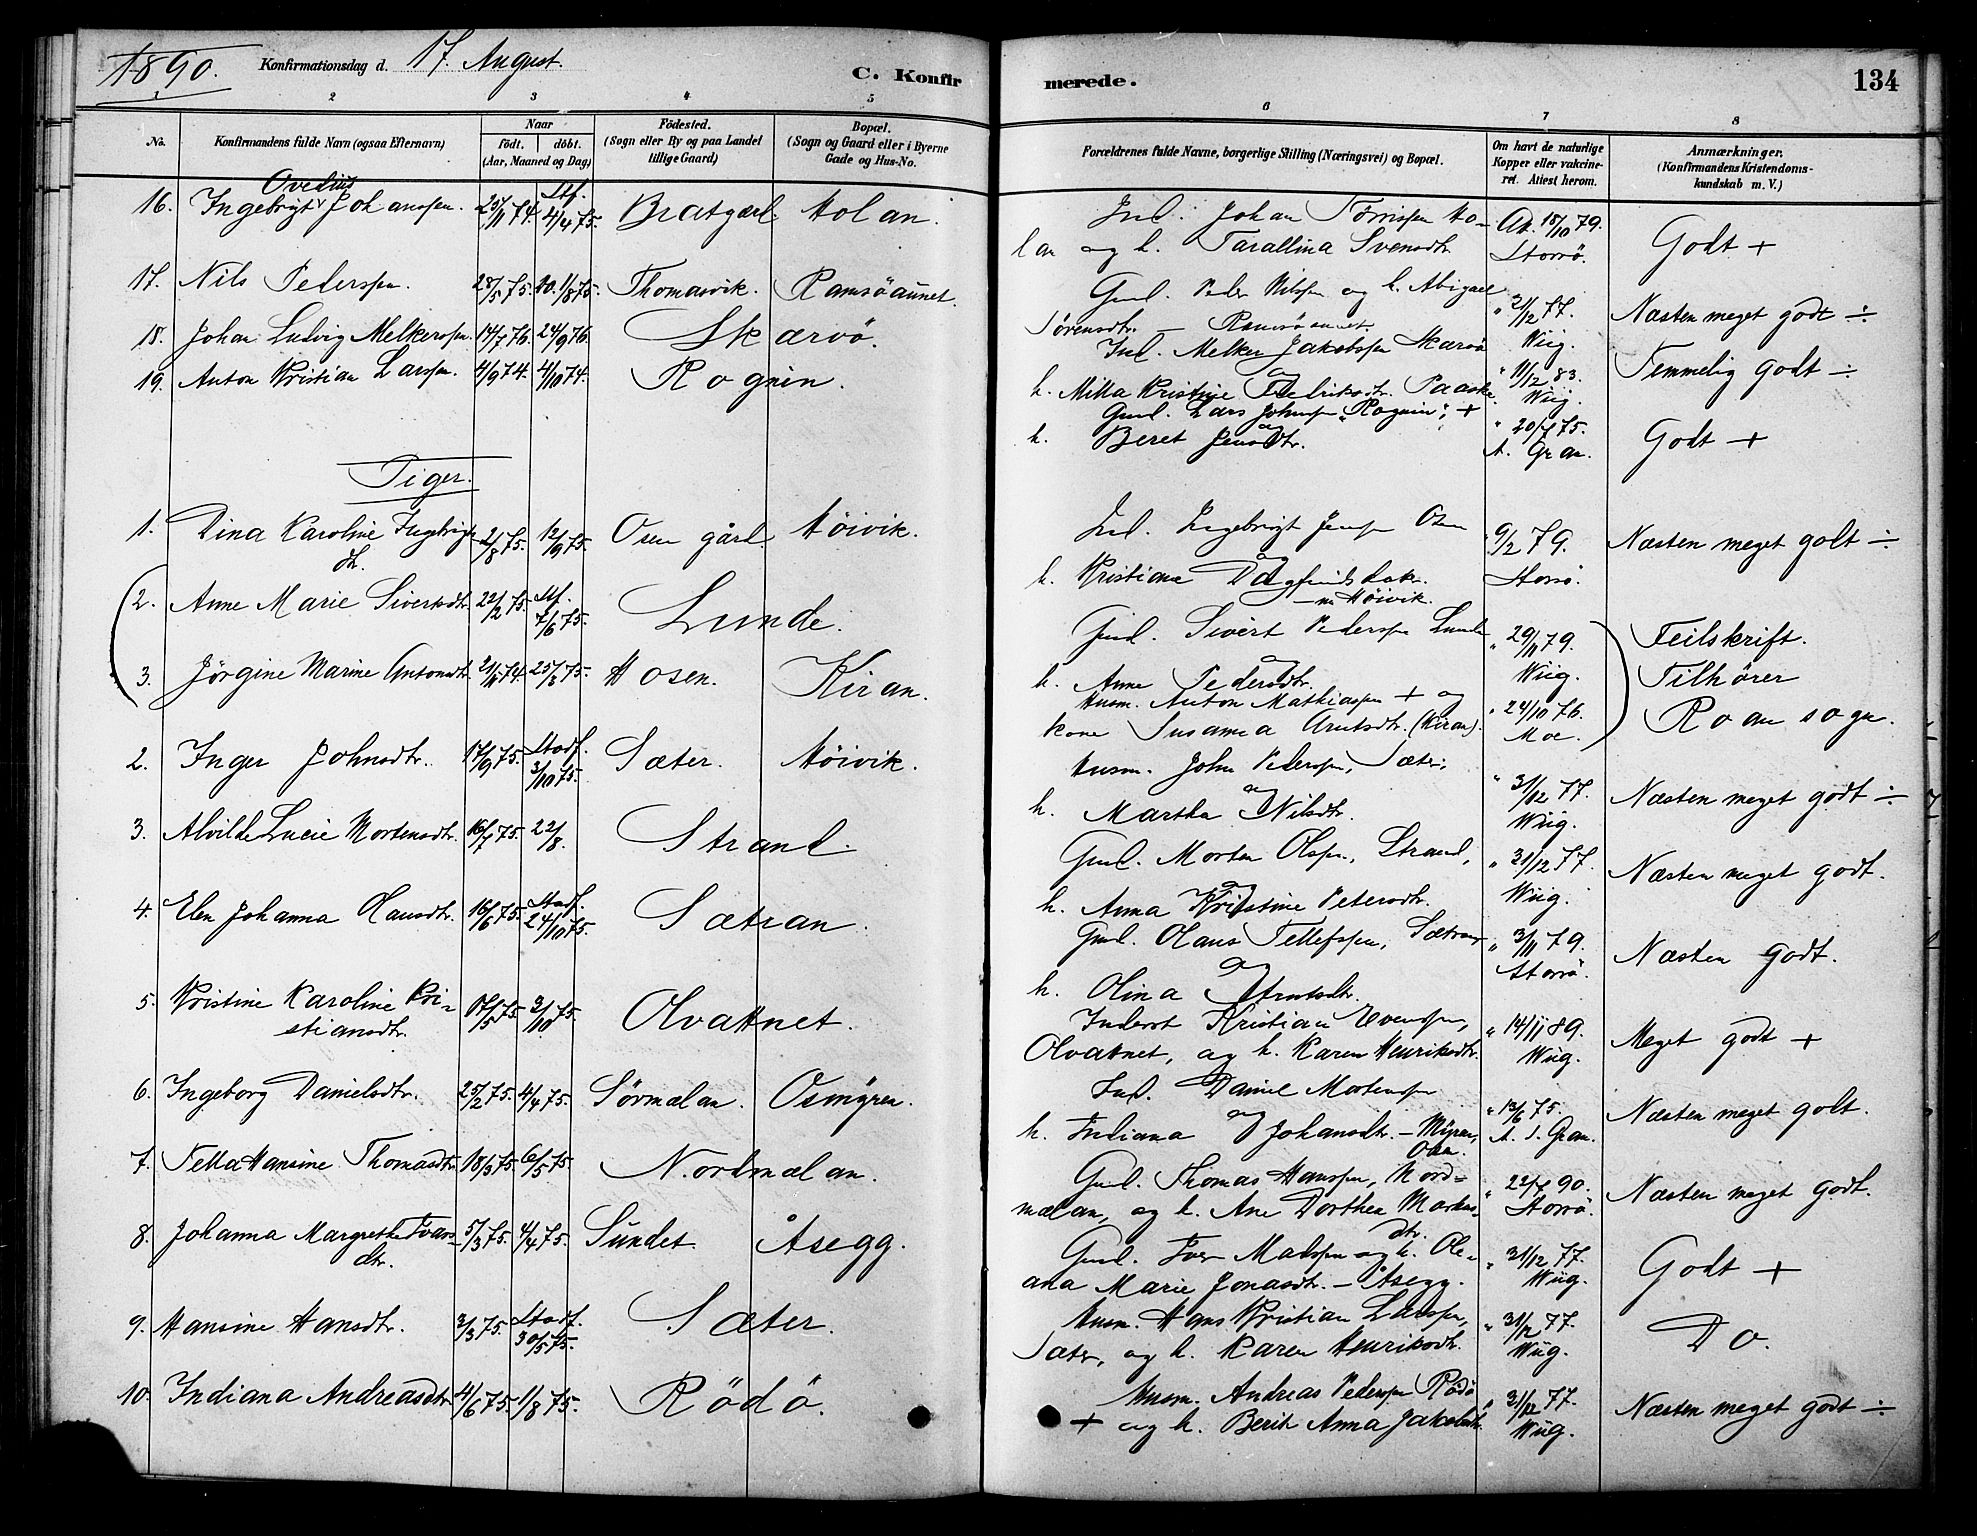 1890. Konfirmationsdag d. 17. August.
C. Konfirmerede.
134
1 2 3 4 5 6 7 8
No. Konfirmandens fulde Navn (ogsaa Efternavn) Naar født. døbt. (Aar, Maaned og Dag) Fødested. (Sogn eller By og paa Landet tillige Gaard) Bopæl. (Sogn og Gaard eller i Byerne Gade og Hus-No. Forældrenes fulde Navne, borgerlige Stilling (Næringsvei) og Bopæl. Om havt de naturlige Kopper eller vakcineret. Attest herom. Anmærkninger. (Konfirmandens Kristendomskundskab m. V.)
Ovedius
16. Ingebrigt Johanssen. 25/11 74. 4/4 75. Bratgærd. Molan. Ind. Johan Tørrissen Mo-
lan og h. Tarallina Svensdtr. At. 18/10 79. Storrø. Godt +
17. Nils Pederssen. 28/5 75. 1/8 75. Thomasvik. Ramsøaunet. Gmd. Peder Nilssen og h. Abigael
Sørensdtr. — Ramsøaunet. " 31/12 77. Wiig. Næsten meget godt ÷
18. Johan Ludvig Melkerssen. 14/7 76. 24/9 76. Skarvø. Ind. Melker Jakobssen Skarvø
og
h. Milla Kristine Fredriksdtr. Paaske. " 11/12 83. Wiig. Temmelig godt ÷
19. Anton Kristian Larssen. 4/9 74. 4/10 74. Rognin. Gmd. Lars Johnssen "Rognin", +
og
h. Beret Jensdtr. " 20/7 75. A. Gran. Godt +
Piger.
1. Dina Karoline Ingebrigts-
dtr. 2/8 75. 12/9 75. Osen gård. Høivik. Ind. Ingebrigt Jenssen Osen
og
h. Kristiana Dagfinsdatr.
— nu Høivik. " 9/2 79. Storrø. Næsten meget godt ÷
2. Anne Marie Sivertsdtr. 22/2 75. 7/6 75. Lunde. Gmd. Sivert Pederssen Lunde
og
h. Anne Pedersdtr. " 29/11 79. Wiig. Feilskrift.
3. Jørgine Marine Antonsdtr. 25/3 75. Hosen. Kiran. Husm. Anton Mathiassen + og
kone Susanna Arntsdtr. (Kiran). " 24/10 76. Moe. Tilhører
Roan sogn.
2. Inger Johnsdtr. 17/9 75. Stadf. 3/10 75. Sæter. Høivik. Husm. John Pederssen, Sæter,
og
h. Martha Nilsdtr. " 31/12 77. Wiig. Næsten meget godt ÷
3. Alvilde Lucie Mortensdtr. 16/7 75. 22/8. Strand. Gmd. Morten Olssen, Strand,
og
h. Anna Kristine Petersdtr. " 31/12 77. Wiig. Næsten meget godt.
4. Elen Johanna Hansdtr. 16/6 75. Stadf. 24/10 75. Sætran. Gmd. Olaus Tellefssen, Sætran,
og
h. Olina Arntsdtr. " 3/11 79. Storrø. Næsten godt.
5. Kristine Karoline Kri-
stiansdtr. 3/10 75. Olvatnet. Inderst Kristian Evenssen,
Olvatnet, og h. Karen Henriksdtr. " 14/11 89. Wiig. Meget godt +
6. Ingeborg Danielsdtr. 25/2 75. 4/4 75. Sørmælan. Osmyren. Ind. Daniel Mortenssen
og
h. Indiana Johansdtr. — Myren,
Osen. " 13/6 75. A. S. Gran. Næsten meget godt.
7. Tella Hansine Thomasdtr. 18/3 75. 6/5 75. Nordmælan. Gmd. Thomas Hanssen, Nord-
mælan, og h. Ane Dorthea Markus-
dtr. " 22/7 90. Storrø. Næsten meget godt.
8. Johanna Margrethe Ivars-
dtr. 5/3 75. 4/4 75. Sundet. Åsegg. Gmd. Iver Madssen og h. Ole-
ana Marie Jonasdtr. — Åsegg. " 31/12 77. Wiig. Godt +
9. Hansine Hansdtr. 3/3 75. Stadf. 30/5 75. Sæter. Husm. Hans Kristian Larssen,
Sæter, og h. Karen Henriksdtr. " 31/12 77. Wiig. Do.
10. Indiana Andreasdtr. 4/6 75. 1/8 75. Rødø. Husm. Andreas Pederssen Rødø
+ og h. Berit Anna Jakobsdtr. " 31/12 77. Wiig. Næsten meget godt ÷